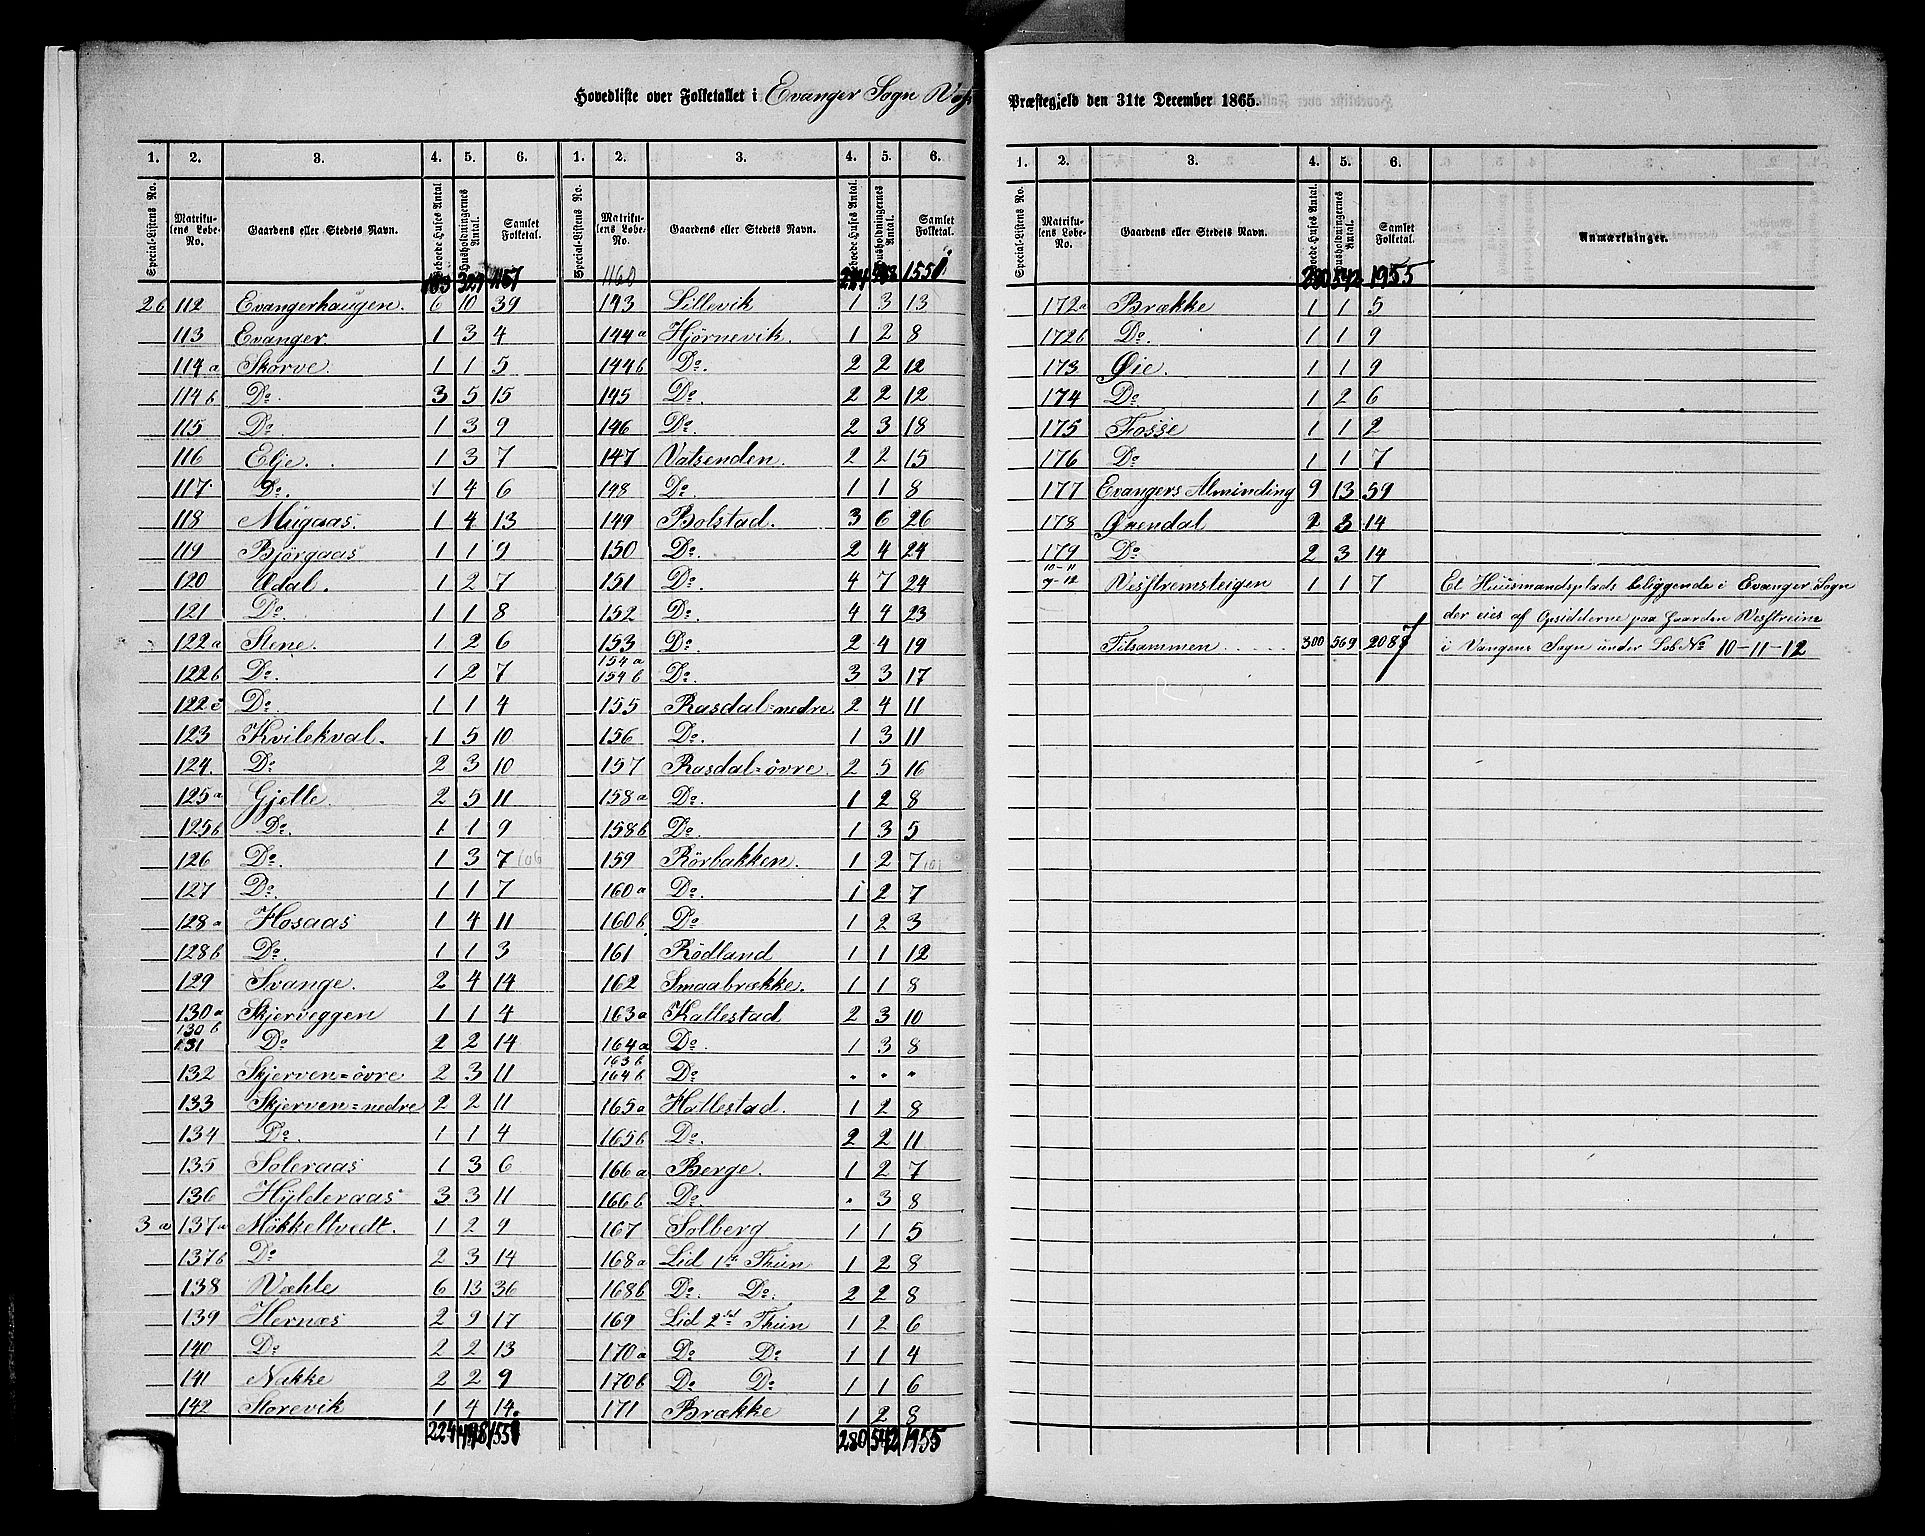 Hovedliste over Folketallet i Evanger Sogn
Præstegjeld den 31te December 1865.
1. 2. 3. 4. 5. 6.
Special-Listens No. Matrikulens Løbe-No. Gaardens eller Stedets Navn. Beboede Huses Antal Husholdningernes Antal. Samlet Folketal.
183 329 1157
26 112 Evangerhaugen. 6 10 39
113 Evanger. 1 3 4
114a Skorve. 1 1 5
114b Do. 3 5 15
115 Do. 1 3 9
116 Elje. 1 3 7
117 Do. 1 4 6
118 Mugaas. 1 4 13
119 Bjørgaas 1 1 9
120 Ædal. 1 2 7
121 Do. 1 1 8
122a Stene. 1 2 6
122b Do. 1 2 7
122c Do. 1 1 4
123 Kvilekval. 1 5 10
124. Do 2 3 10
125a Gjelle. 2 5 11
125b Do. 1 1 9
126 Do. 1 3 7 106
127 Do. 1 1 7
128a Hosaas 1 4 11
128b Do. 1 1 3
129 Svange. 2 4 14
130a Skjerveggen 1 1 4
130b
131 Do 2 2 14
132 Skjerven=övre 2 3 11
133 Skjerven=nedre 2 2 11
134 Do. 1 1 4
135 Soleraas 1 3 6
136 Hylderaas 3 3 11
3a 137a Mökkeltvedt. 1 2 9
137b Do 2 3 14
138 Væhle 6 13 36
139 Hernæs 2 2 17
140 Do 2 2 13
141 Nakke 2 2 9
142 Storevik 1 4 14.
224 498 1551
1. 2. 3. 4. 5. 6.
Special-Listens No. Matrikulens Løbe-No. Gaardens eller Stedets Navn. Beboede Huses Antal. Husholdningernes Antal. Samlet Folketal.
1160 1551
143 Lillevik 1 3 13
144a Hjørnevik. 1 2 8
144b Do. 2 2 12
145 Do. 2 2 12
146 Do. 2 3 18
147 Vatsenden. 2 2 15
148 Do. 1 1 8
149 Bolstad. 3 6 26
150 Do. 2 4 24
151 Do. 4 7 24
152 Do. 4 4 23
153 Do. 2 4 19
154a
154b Do. 3 3 17
155 Rasdal=nedre. 2 4 11
156 Do. 1 3 11
157 Rasdal=övre. 2 5 16
158a Do. 1 2 8
158b Do. 1 3 5
159 Rörbakken. 1 2 7
160a Do. 1 2 7
160b Do. 1 2 3
161 Rödland 1 1 12
162 Smaabrække. 1 1 8
163a Kallestad 2 3 10
164a Do. 1 3 8
163b
164b Do. " " "
165a Hallestad. 1 2 8
165b Do. 2 2 11
166a Berge. 1 2 7
166b Do. " 3 8
167 Solberg 1 1 5
168a Lid 1te Thun 1 2 8
168b Do. Do. 2 2 8
169 Lid 2det Thun 1 2 6
170a Do Do 1 1 4
170b Do Do 1 1 6
171 Brække 1 2 8
280 542 1955
1. 2. 3. 4. 5. 6.
Special-Listens No. Matrikulens Løbe-No. Gaardens eller Stedets Navn. Beboede Huses Antal. Husholdningernes Antal. Samlet Folketal. Anmærkninger.
280 542 1955
172a Brække 1 1 5
172b Do. 1 1 9
173 Øie. 1 1 9
174 Do. 1 2 6
175 Fosse 1 1 2
176 Do 1 1 7
177 Evangers Alminding 9 13 59
178 Øxendal 2 3 14
179 Do 2 3 14
10-11
9-12 1 1 7 Et Huusmandsplads beliggende i Evanger Sogn
der eies af Opsidderne paa Gaarden
Tilsammen 300 569 2087 i Vangens Sogn under Löb No 10-11-12